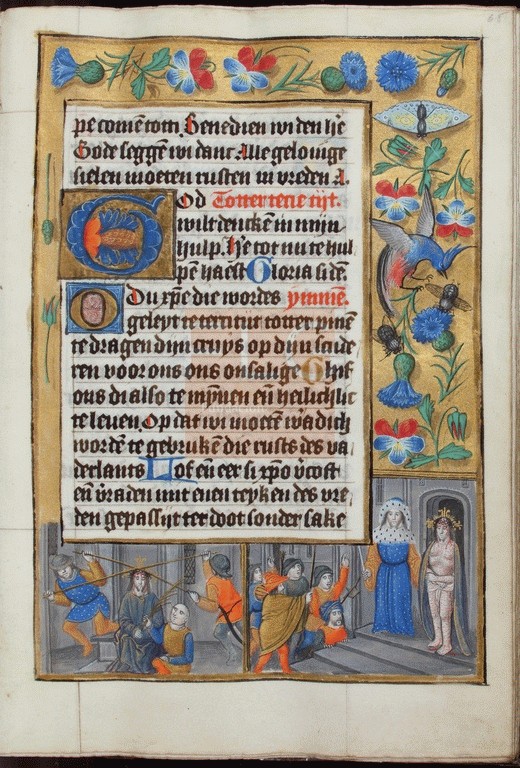 pe comē totti. Benedien wi den h̄e
Gode seggē wi danc Alle gelouige
sielen moeten rusten in vreden A.
God Totter tercie tijt.
wilt dencke in mijn
hulp. H̄e tot mi te hul
pē haest Gloria si dē.
O Du xp̄e die wordes ymnie.
geleyt te terci tijt totter pinē
te dragen dijn cruys op dijn scude
ren voor ons ons onsalige
ons di also te mȳnen eñ heilichlic
te leuen Op dat wi moetē v̄adich
wordē te gebrukē die rusts des va
derlants Lof eñ eer si xp̄o v̄cost
eñ v̄raden mit enen teyken des vre
den gepassijt ter doot sonder sake